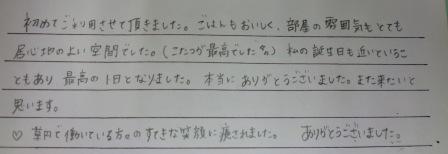 初めてご利用させて頂きました。ごはんもおいしく、部屋の雰囲気もとても
居心地のよい空間でした。(こたつが最高でした^^) 私の誕生日も近いというこ
ともあり 最高の1日となりました。本当にありがとうございました。また来たいと
思います。
♡ 草円で働いている方。のすてきな笑顔に癒されました。 ありがとうございました。